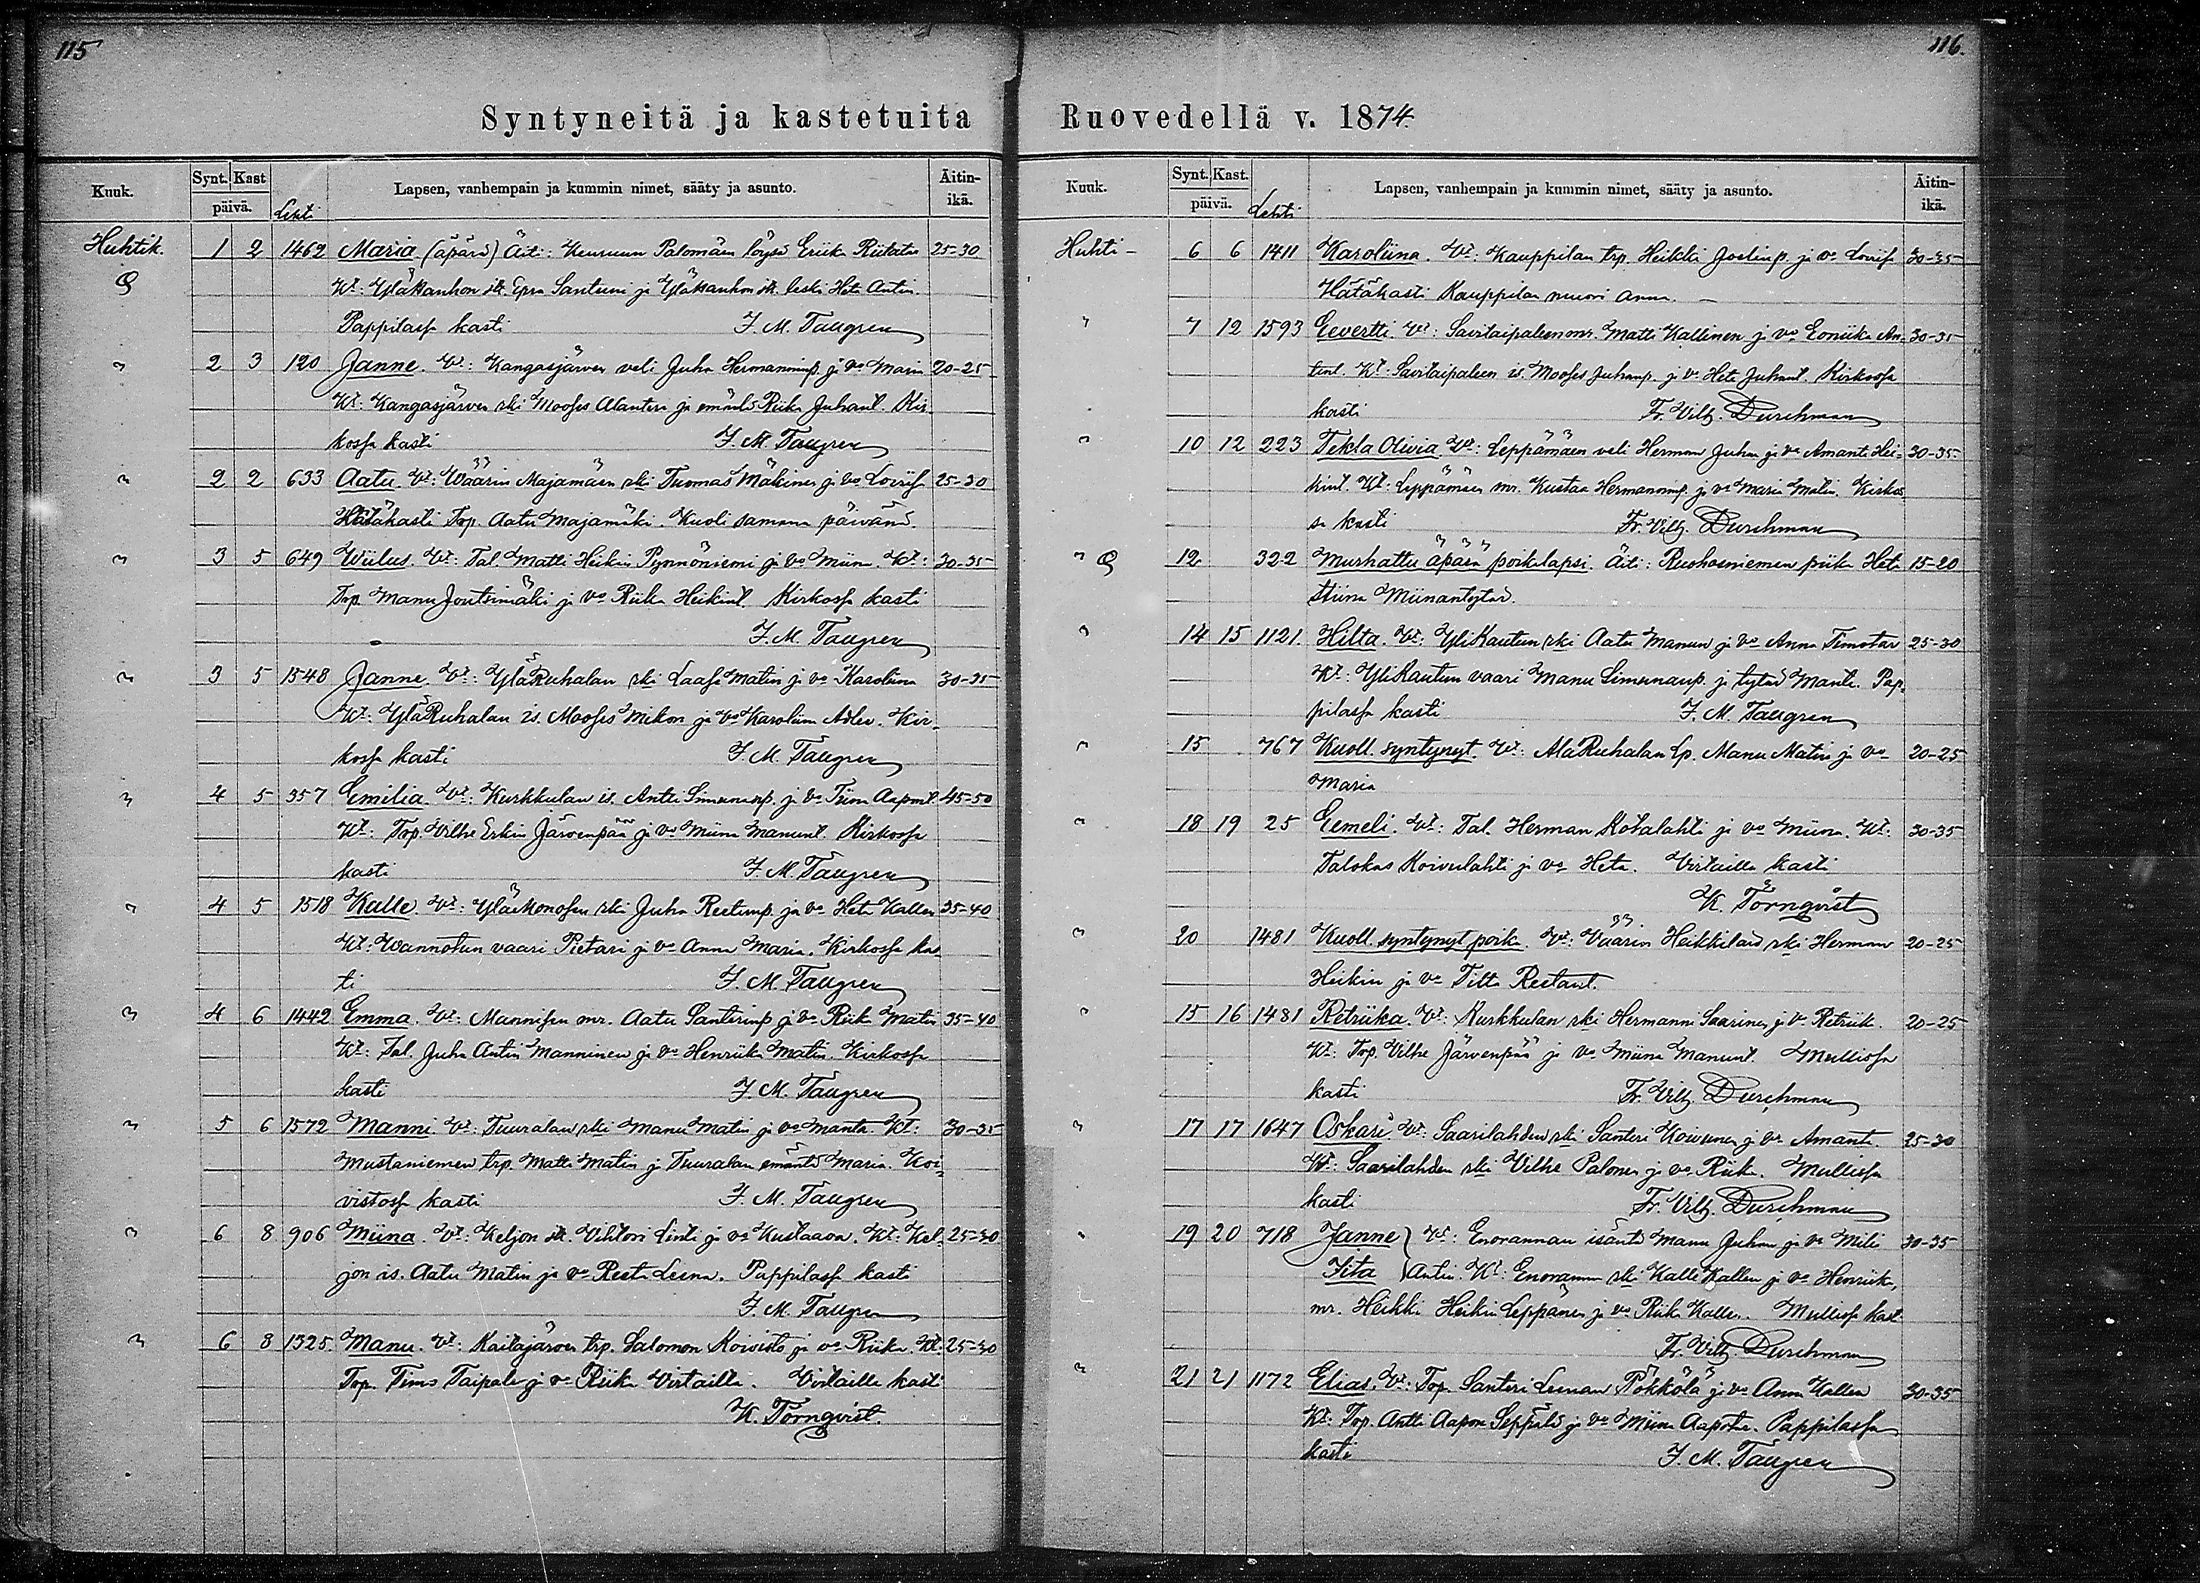 115
Syntyneitä ja kastetuita
Kuuk.
Synt. Kast
päivä.
Lehti
Lapsen, vanhempain ja kummin nimet, sääty ja asunto.
Äitin-
ikä.
Huhtik. 1 2 1462 Maria (äpärä) Äiti: Keuruun Palomäen löysä Eriika Riitatar 25-30
Kt: Yläkauhon itk. Epra Santerin ja Yläkauhon itk. leski Heta Antin.
Pappilassa kasti J. M. Taugren
" 2 3 120 Janne. Vt: Kangasjärven veli Juha Hermanninp. ja vo Maria 20-25
Kt: Kangasjärven rki Mooses Alanteri ja emäntä Riika Juhant. Kir-
kossa kasti J. M. Taugren
" 2 2 633 Aatu. Vt: Wäärin Majamäen rki Tuomas Mäkinen ja vo Loviisa 25-30
Hätäkasti Trp. Aatu Majamäki. Kuoli samana päivänä.
" 3 5 649 Wiilus. Vt: Tal. Matti Heikin Pynnöniemi ja vo Miina. Kt: 30-35
Trp Manu Joutsimäki ja vo Riika Heikint. Kirkossa kasti
J. M. Taugren
" 3 5 1548 Janne. Vt: YläRuhalan rki Laasa Matin ja vo Karoliina 30-35
Kt: YläRuhalan is. Mooses Mikon ja vo Karoliina Adlev. Kir-
kossa kasti J. M. Taugren
" 4 5 357 Emilia. Vt: Kurkkulan is. Antti Simunanp. ja vo Tiina Aapont. 45-50
Kt: Trp. Vilhe Erkin Järvenpää ja vo Miina Manunt. Kirkossa
kasti J. M. Taugren
" 4 5 1518 Kalle. Vt: YläMonosen rki Juha Reetunp. ja vo Heta Kallen 35-40
Kt: Wannotun vaari Pietari ja vo Anna Maria. Kirkossa kas-
ti J. M. Taugren
" 4 6 1442 Emma. Vt: Mannisen mr. Aatu Santerinp. ja vo Riika Matin 35-40
Kt: Tal. Juha Antin Manninen ja vo Henriika Matin. Kirkossa
kasti J. M. Taugren
" 5 6 1572 Manni. Vt: Tuuralan rki Manu Matin ja vo Manta. Kt: 30-35
Mustaniemen trp. Matti Matin ja Tuuralan emäntä Maria. Koi-
vistossa kasti J. M. Taugren
" 6 8 906 Miina. Vt: Keljon itk. Vihtori Linti ja vo Kustaava. Kt: Kel- 25-30
jon is. Aatu Matin ja vo Reeta Leena. Pappilassa kasti
J. M. Taugren
" 6 8 1325. Manu. Vt: Kaitajärven trp. Salomon Koivisto ja vo Riika. Kt: 25-30
Trp. Timo Taipale ja vo Riika Virtailla. Virtailla kasti
K. Törnqvist.
116.
Ruovedellä v. 1874.
Kuuk.
Synt. Kast.
päivä.
Lehti
Lapsen, vanhempain ja kummin nimet, sääty ja asunto.
Äitin-
ikä.
Huhti- 6 6 1411 Karoliina. Vt: Kauppilan trp. Heikki Joelinp. ja vo Loviisa 30-35
Hätäkasti Kauppilan muori Anna. —
" 7 12 1593 Eevertti. Vt: Savitaipaleen mr. Matti Kallinen ja vo Eeriika An- 30-35
tint. Kt: Savitaipaleen is. Mooses Juhanp. ja vo Heta Juhant. Kirkossa
kasti Fr. Vilh. Durchman
" 10 12 223 Tekla Olivia. Vt: Leppämäen veli Herman Juhan ja vo Amanta Hei- 30-35
kint. Kt: Leppämäen mr. Kustaa Hermanninp. ja vo Maria Matin. Kirkos-
sa kasti Fr. Vilh. Durchman
" 12 322 Murhattu äpärä poikalapsi. Äiti: Ruohosniemen piika Heta 15-20
Stiina Miinantytär.
" 14 15 1121. Hilta. Vt: YliKautun rki Aatu Manun ja vo Anna Timotar 25-30
Kt: YliKautun vaari Manu Simunanp. ja tytär Manta. Pap-
pilassa kasti J. M. Taugren
" 15 767 Kuoll. syntynyt. Vt: AlaRuhalan Lp. Manu Matin ja vo 20-25
Maria
" 18 19 25 Eemeli. Vt: Tal. Herman Kotalahti ja vo Miina. Kt: 30-35
Talokas Koivulahti ja vo Heta. Virtailla kasti
K. Törnqvist
" 20 1481 Kuoll. syntynyt poika. Vt: Väärin Heikkilän rki Herman 20-25
Heikin ja vo Tilta Reetant.
" 15 16 1481 Retriika. Vt: Kurkkulan rki Hermanni Saarinen ja vo Retriik. 20-25
Kt: Trp. Vilhe Järvenpää ja vo Miina Manunt. Mulliossa
kasti Fr. Vilh. Durchman
" 17 17 1647 Oskari. Vt: Saarilahden rki Santeri Koivunen ja vo Amanta. 25-30
Kt: Saarilahden rki Vilhe Palonen ja vo Riika. Mulliossa
kasti Fr. Vilh. Durchman
" 19 20 718 Janne } Vt: Enorannan isäntä Manu Juhan ja vo Miili 30-35
Iita } Antin. Kt: Enorannan rki Kalle Kallen ja vo Henriika,
mr. Heikki Heikin Leppänen ja vo Riika Kallen. Mulliossa kast.
Fr. Vilh. Durchman
" 21 21 1172 Elias. Vt: Trp. Santeri Leenan Pökkölä ja vo Anna Kallen 30-35
Kt: Trp. Antti Aapon Seppälä ja vo Miina Aapotar. Pappilassa
kasti J. M. Taugren